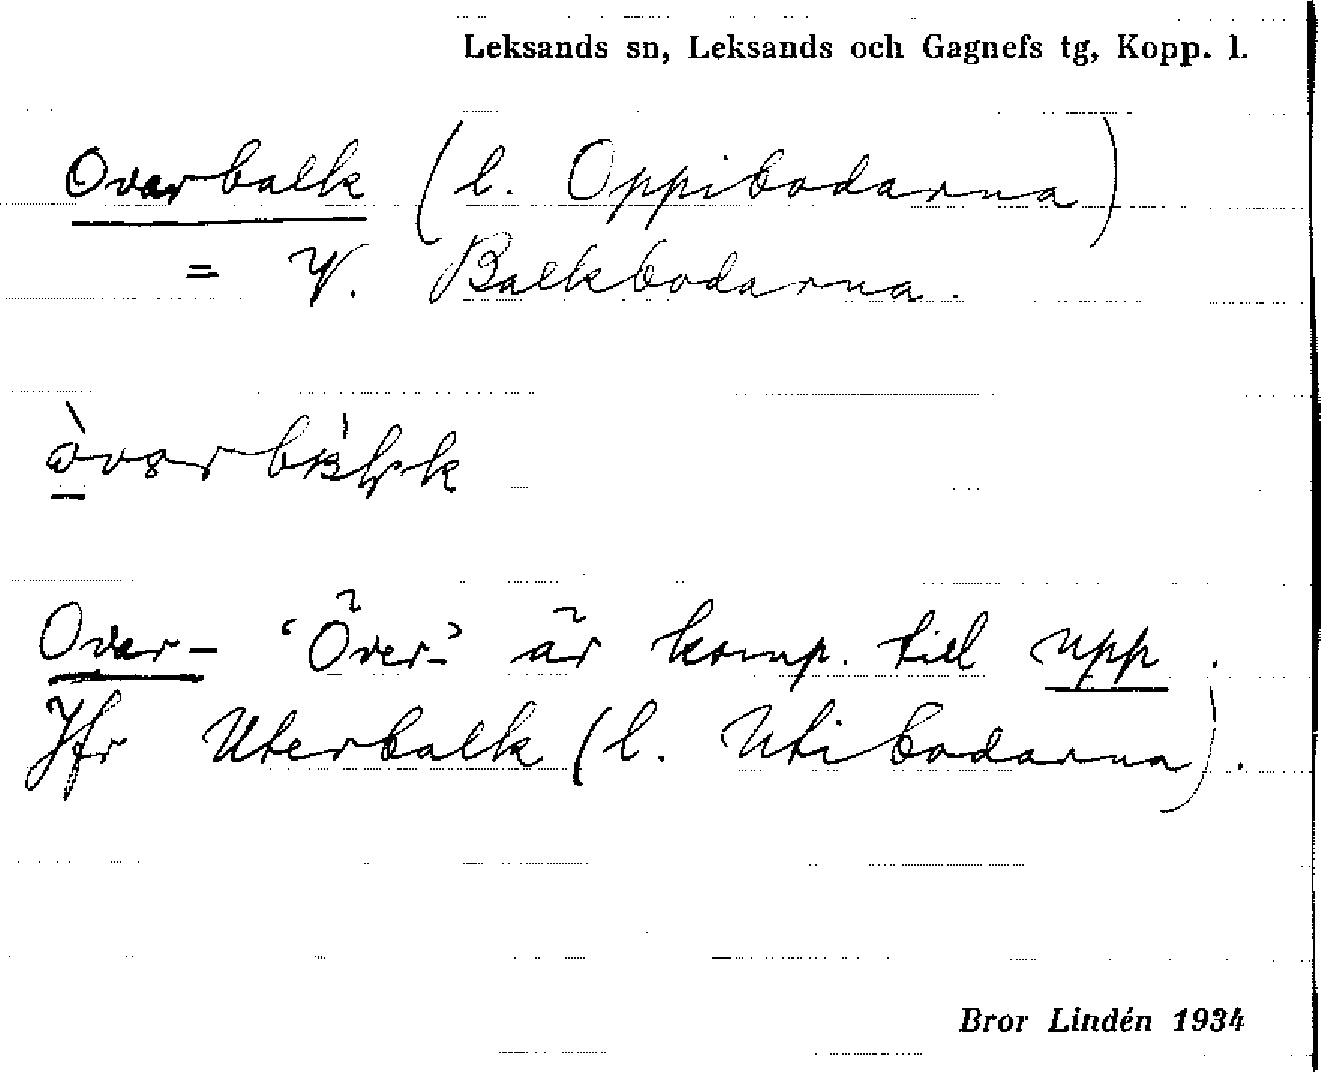 Leksands sn, Leksands och Gagnefs tg, Kopp. l.
Overbalk (l. Oppibodarna)
= V. Balkbodarna.
Over- 'Över-' är komp. till upp.
Jfr Uterbalk (l. Utibodarna).
Bror Lindén 1934